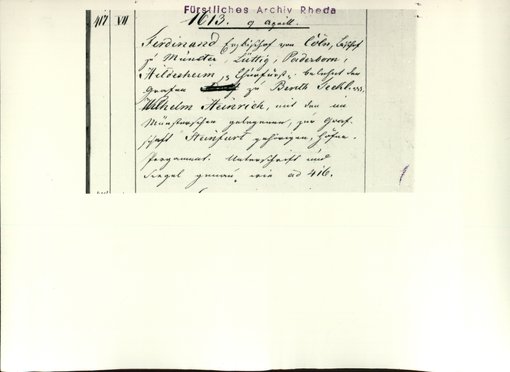 Fürstliches Archiv Rheda
417 VII 1613. 9 Aprill.
Ferdinand Erzbischof von Cöln, Bischof
zu Münster, Lüttig, Paderborn,
Hildesheim, Churfürst, belehnt den
Grafen zu Benth. Tecklenb.
Wilhelm Heinrich, mit den im
Münsterschen gelegenen, zur Graf-
schaft Steinfurt gehörigen, Höfen.
Pergament. Unterschrift und
Siegel genau, wie ad 416.